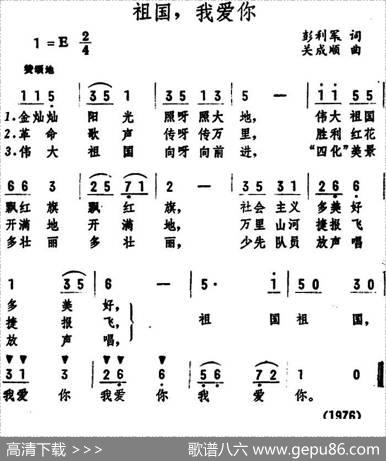 祖国，我爱你
1=E 2/4
彭利军 词
关成顺 曲
赞颂地
1 1 5 3 5 1 3 5 1 3 5 — 1 1 5 5
1.金灿灿 阳光 照呀照大 地， 伟大祖国
2.革命 歌声 传呀传万 里， 胜利红花
3.伟大 祖国 向呀向前 进， “四化”美景
6 6 3 2 5 7 1 3 5 3 1 2 6 6
飘红旗 飘红旗， 社会主义 多美好
开满地 开满地， 万里山河 捷报飞
多壮丽 多壮丽， 少先队员 放声唱
1 3 5 6 — 5· 1 5 0 3 0
多美好，
捷报飞， 祖国 祖国，
放声唱，
3 1 3 2 6 6 5 6 2 1 0
我爱你 我爱你 我爱你。
(1976)
高清下载 >>>
歌谱八六 www.gepu86.com